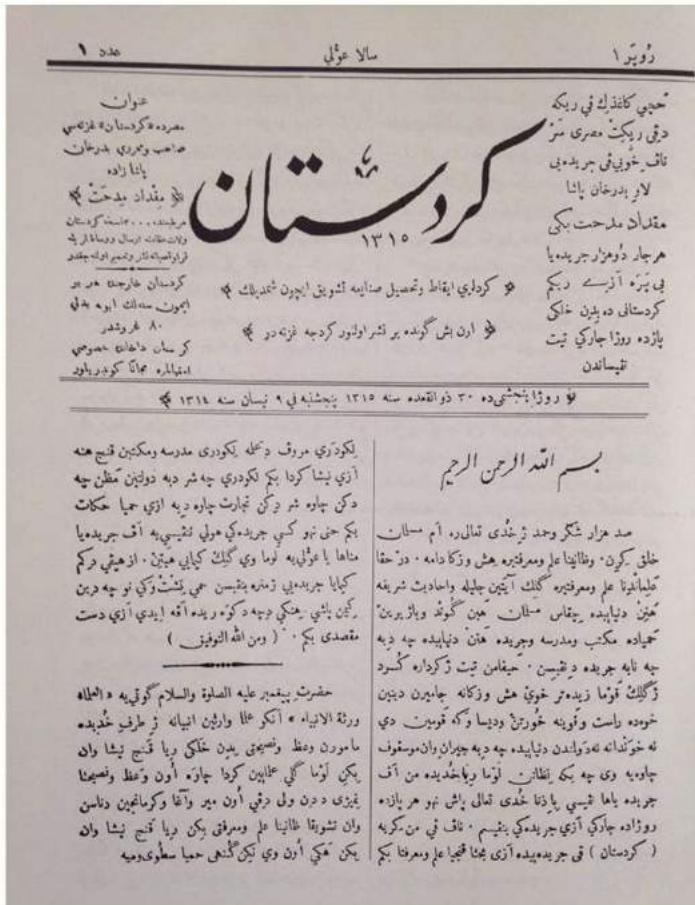 رُوپَرَ ١
سالا عوّلي
عدد ١
حچيي كاغذك في ريكه
دڤي ريكتْ مصري سَرْ
ناڤ خُوبي ڤي جريده يي
لاوِ بدرخان پاشا
مقداد مدحت بكي
هرجار دُوهزار جريده يا
بي پَرَه آزيـے ريكم
كردستانی ده بدِن خلكی
پازده روزا جاركي تيت
نڤيساندن
كردستان
١٣١٥
عنوان
مصرده «كردستان» غزته سي
صاحب ومحرري بدرخان
پاشا زاده
مِقْداد مِدحَتْ
كردستان خارجنه هر بر
ايچون سنه لك ابونه بدلي
٨٠ غروشدر
كردستان داخلنه خصوصي
كردلري ايقاظ وتحصيل صنايعه تشويق ايچون شمديلك
اون بش كونده بر نشر اولنور كردجه غزته در
روژا پنجشمي ده ٣٠ ذو القعده سنه ١٣١٥ پنجشنبه في ٩ نيسان سنه ١٣١٤
بسم الله الرحمن الرحيم
صد هزار شكر وحمد ژ خُدی تعالی ره ام مسلمان
خلق كِرِن . وظانينا علم ومعرفتيره هِش وزكا دامه . درْ حقا
عِلماندنا علم ومعرفتيره گلِك آيتين جليله واحاديث شريفه
هَنِنْ دنياييده چِقاس مسلمان هين گُوند وباژيرين
حَمياده مكتب ومدرسه وجريده هَنْ دنياييده چه دِبه
چه نابه جريده دِنڤيسن . حيفامن تيت ژكرداره كُرد
ژ گلِك قوما زيده تر خويْ هش وزكانه جاميرن دينين
خوه ده راست وقوينه خورتِن وديسا وَكه قومين دي
نه خوندانه نه دولتمندن دنياييده چه دبه جيران وان موسقوف
چاوه يه وی چه بكه نظانن لَوْما رِيا خديده من اف
جريده ياها نڤيسي پاِذنا خُدی تعالی پاش نهو هر پازده
روژاده جاركي آزي جريده كي بنڤيسم . ناڤ في من كريه
( كردستان ) ڤي جريده ييده آزي بحثا قنجيا علم ومعرفتا بكم
لِكودَري مروف دِعلمه لِكودری مدرسه ومكتبين قنج هنه
آزي نيشا كردا بكم لِكودري چه شر دبه دولتين مَظن چه
دكن چاوه شر دِكن تجارت چاوه دِبه ازي حميا حكات
بكم حتی نهو كسي جريده كي هولي ننڤيسيه اف جريده يا
مناها يا عوّلي يه لَوْما وي گلِك كيمايي هَبِتِنْ . از هيڤي دركم
كيمايا جريده يي ژمنره بنڤيسن حمي تِشْت وَكي نو چه دبن
كيمن باشي رِهنكي دِچه دكوَه رِيده اڤه ايدي آزي دست
مقصدي بكم . ( ومن الله التوفيق )
حضرتِ پيغمبر عليه الصلوة والسلام گوتي يه « العلماء
ورثة الانبياء » آنكو علما وارثين انبيانه ژ طرف خُديده
مأمورن وعظ ونصيحتي بِدن خلكی رِيا قَنج نيشا وان
بِكن لَوْما گَلي علمايين كردا چاوَه اُون وَعظ ونصيحتا
نِميژی ددن ولی دِڤي اُون مير وآغا وكرمانجين دناسن
وان تشويقا ظانينا علم ومعرفتي بِكن رِيا قنج نيشا وان
بِكن هَكي اُون وي نكِن گُنهی حميا سطوی وه يه